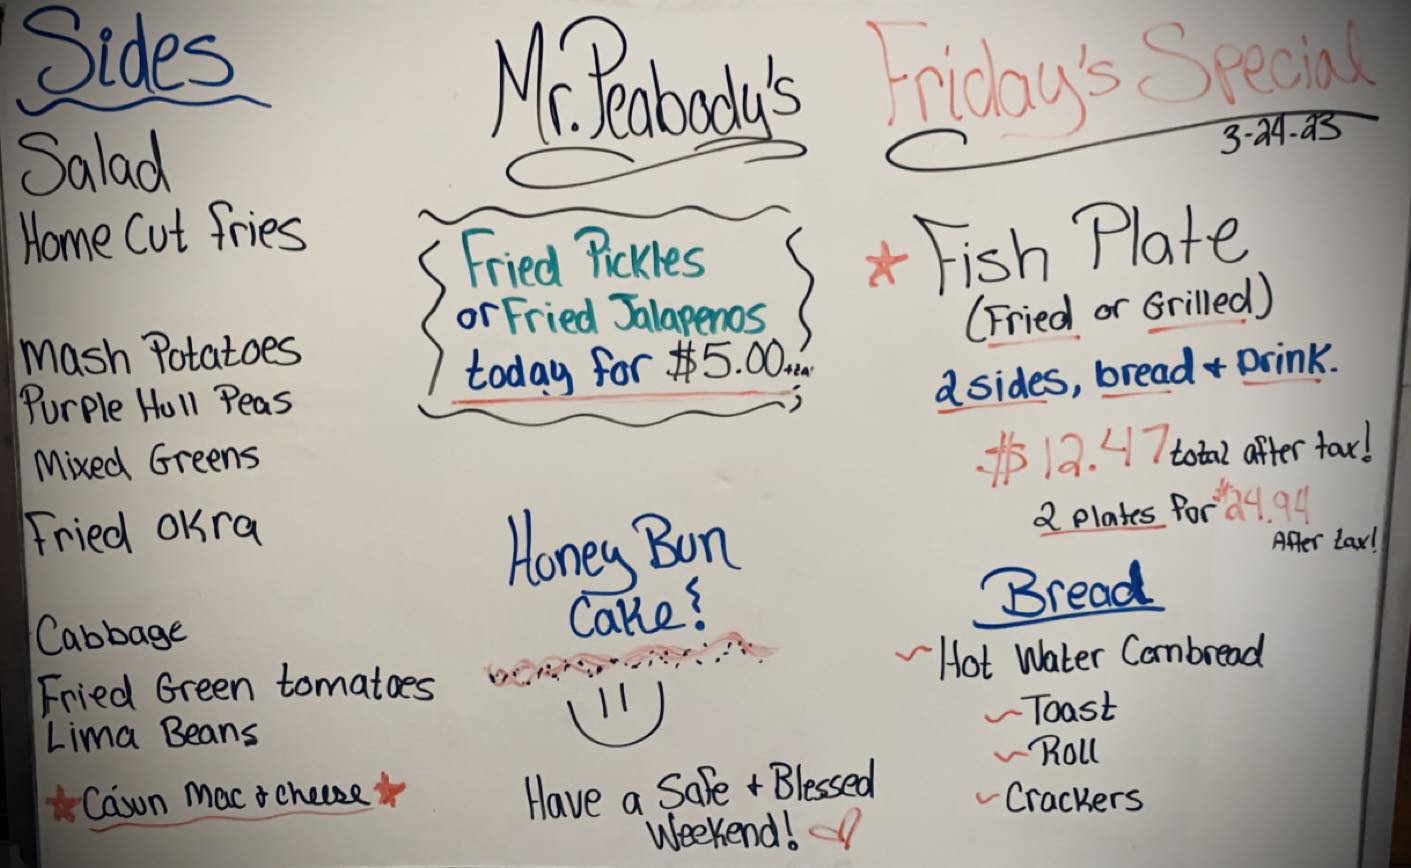 Sides
Salad
Home Cut fries
Mash Potatoes
Purple Hull Peas
Mixed Greens
Fried Okra
Cabbage
Fried Green tomatoes
Lima Beans
Cajun Mac & cheese
Mr. Peabody's
Fried Pickles
or Fried Jalapenos
today for $5.00
Honey Bun
Cake!
Have a Safe + Blessed
Weekend!
Friday's Special
3-24-23
Fish Plate
(Fried or Grilled)
2 sides, bread + Drink.
$12.47 total after tax!
2 plates for $24.94
After tax!
Bread
Hot Water Cornbread
Toast
Roll
Crackers